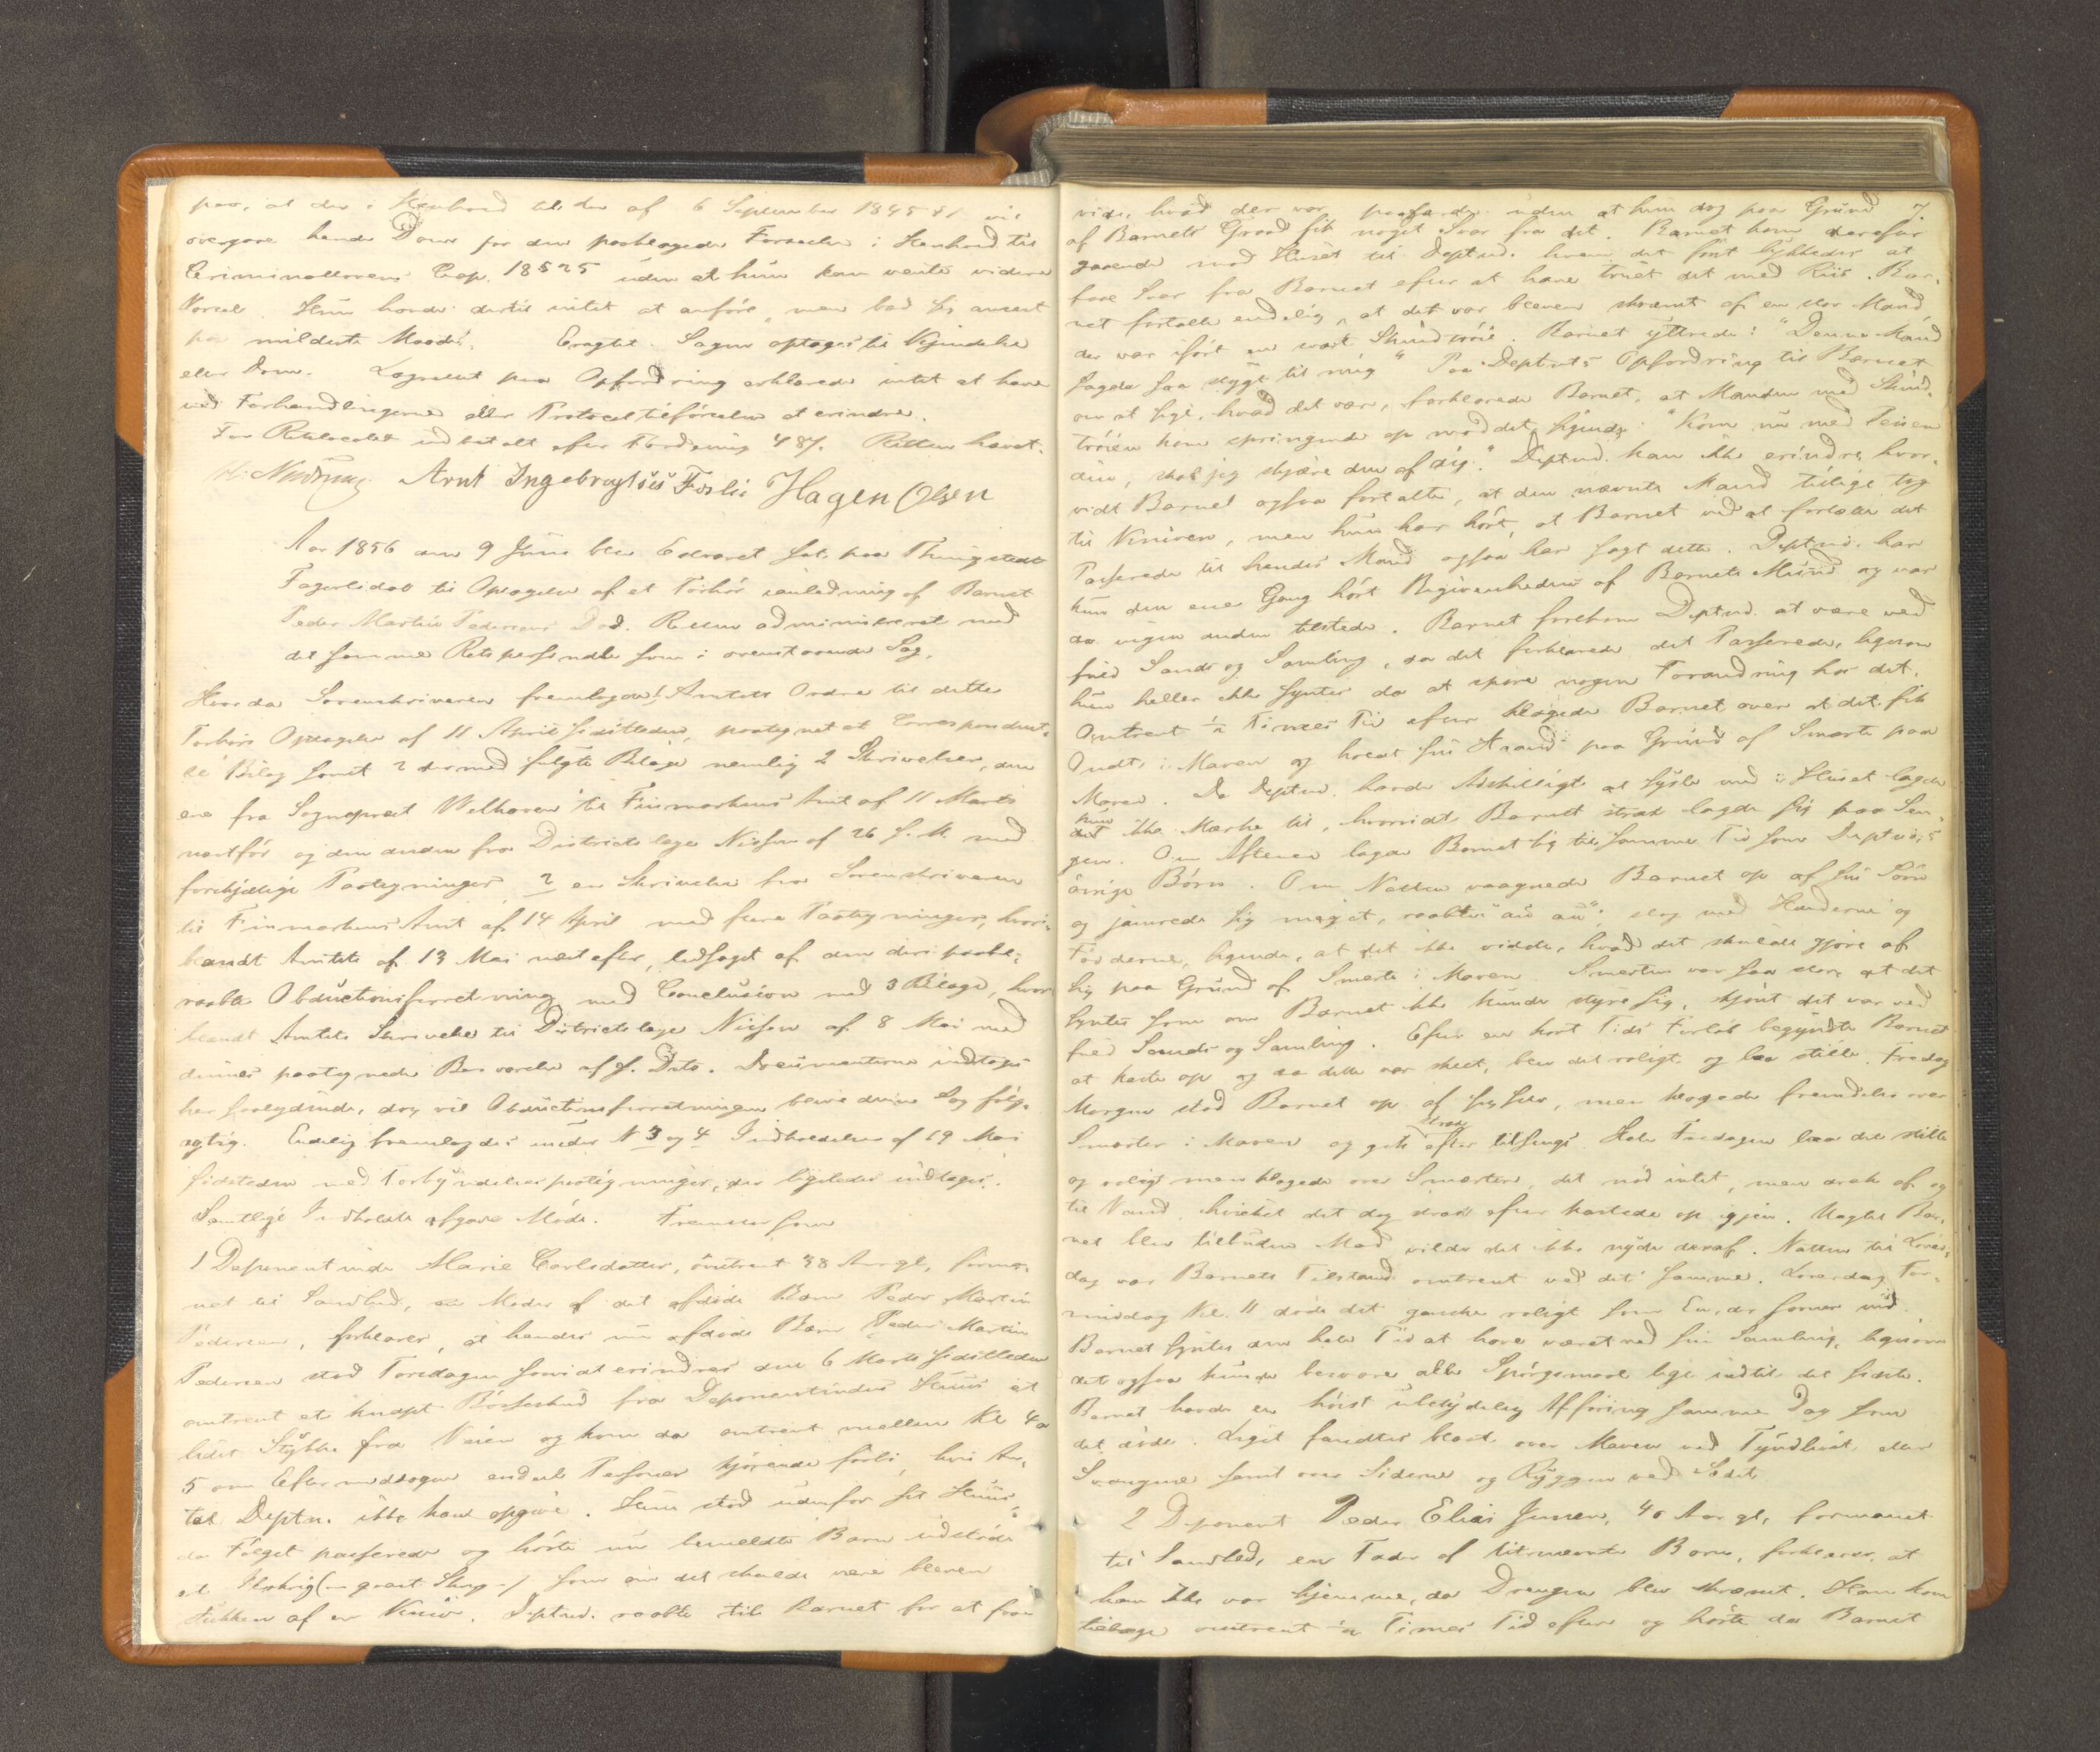 paa, at der i Henhold til Lov af 6 September 1845 § 1 vil
overgaae hende Dom for den paaklagede Forseelse i Henhold til
Criminallovens Cap. 18 § 25 uden at hun kan vente videre
Varsel. Hun havde dertil intet at anföre, men bad sig anseet
paa mildeste Maade. Eragtet. Sagen optages til Kjendelse
eller Dom. Lagrettet paa Opfordring erklærede intet at have
ved Forhandlingerne eller Protocoltilförselen at erindre.
For Retslocalet udbetalt efter Fordring 48 /. Retten hævet.
Arnt Ingebrigtsen Foslie Hagen Olsen
Aar 1856 den 9 Juni blev Extraret sat paa Thingstedet
Fagerlidal til Optagelse af et Forhör i anledning af Barnet
Peder Martin Pedersens Död. Retten administreret med
det samme Retspersonale som i ovenstaaende Sag.
Hvorda Sorenskriveren fremlagde 1, Amtets Ordre til dette
Forhörs Optagelse af 11 April sidstleden, paategnet et
Bilag samt 2 dermed fulgte Bilage nemlig 2 Skrivelser, den
ene fra Sognepræst Welhaven til Finmarkens Amt af 11 Marts
næstför og den anden fra Districtslæge Nissen af 26 s. M. med
forskjellige Paategninger, 2 en Skrivelse fra Sorenskriveren
til Finmarkens Amt af 14 April med flere Paategninger, hvori-
blandt Amtets af 13 Mai næstefter, ledsaget af den deri paabe-
raabte Obductionsforretning med Conclusion med 3 Bilage, hvor
blandt Amtets Skrivelse til Districtslæge Nissen af 8 Mai med
dennes paategnede Besvarelse af s. Dato. Documenterne indtages
her saalydende, dog vil Obductionsforretningen blive denne Sag fölg-
agtig. Endelig fremlagdes under N 3 og 4 Indkaldelse af 19 Mai
sidstleden med Forkyndelsespaategninger, der ligeledes indtages.
Samtlige Indkaldte afgave Möde. Fremstod som
1 Deponentinde Marie Carlsdatter, omtrent 38 Aar gl, forme-
net til Sandlid, er Moder af det afdöde Barn Peder Martin
Pedersen, forklarer, at hendes nu afdöde Barn Peder Martin
Pedersen stod Torsdagen saavidt erindres den 6 Marts sidstleden
omtrent et knapt Bösseskud fra Deponentindens Huus et
lidet Stykke fra Veien og kom da omtrent mellem Kl 4 a
5 om Eftermiddagen endeel Personer kjörende forbi, hvis An-
tal Deptn. ikke kan opgive. Hun stod udenfor sit Huus
da Fölget passerede og hörte nu bemeldte Barn udstöde
et Ilskrig (en græt Skrig) som om det skulde være bleven
stukken af en Kniv. Deptnd. raabte til Barnet for at faae
7.
vide, hvad der var paafærde uden at hun dog paa Grund
af Barnets Graad fik noget Svar fra det. Barnet kom derefter
gaaende mod Huset til Deptnd. hvem det först lykkedes at
faae Svar fra Barnet efter at have truet det med Riis. Bar-
net fortalte endelig, at det var bleven skræmt af en stor Mand,
der var iført en svart Skindtröie. Barnet yttrede: "Denne Mand
sagde saa stygt til mig" Paa Deptnds Opfordring til Barnet
om at sige, hvad det var, forklarede Barnet, at Manden med Skind-
tröien kom springende op mod det sigende: "Kom nu med Teisen
din, skal jeg skjære den af dig." Deptnd. kan ikke erindre, hvor-
vidt Barnet ogsaa fortalte, at den nævnte Mand tillige tog
til Kniven, men hun har hört, at Barnet ved at fortælle det
Passerede til hendes Mand ogsaa har sagt dette. Deptnd. har
kun den ene Gang hört Begivenheden af Barnets Mund og var
da ingen anden tilstede. Barnet forekom Deptnd. at være ved
fuld Sands og Samling, da det forklarede det Passerede, ligesom
hun heller ikke syntes da at spore nogen Forandring hos det.
Omtrent ½ Times Tid efter klagede Barnet over at det fik
Ondt i Maven og holdt sin Haand paa Grund af Smerte paa
Maven. Da Deptnd. havde Adskilligt at syste med i Huset lagde
hun ikke Mærke til, hvorvidt Barnet strax lagde sig paa Sen-
gen. Om Aftenen lagde Barnet sig til samme Tid som Deptnds
övrige Börn. Om Natten vaagnede Barnet op af sin Sövn
og jamrede sig meget, raabte "au au", slog med Hænderne og
Födderne, sigende, at det ikke vidste, hvad det skulde gjöre af
sig paa Grund af Smerte i Maven. Smerten var saa stor, at det
syntes som om Barnet ikke kunde styre sig, skjönt det var ved
fuld Sands og Samling. Efter en kort Tids Forlöb begyndte Barnet
at kaste op og da dette var skeet, blev det roligt og laa stille. Fredag
Morgen stod Barnet op af sig selv, men klagede fremdeles over
Smerter i Maven og gik strax efter tilsengs. Hele Fredagen laa det stille
og roligt men klagede over Smerter, det nöd intet, men drak af og
til Vand, hvilket det dog strax efter kastede op igjen. Uagtet Bar-
net blev tilbuden Mad vilde det ikke nyde deraf. Natten til Löver-
dag var Barnets Tilstand omtrent ved det samme. Löverdag For-
middag Kl. 11 döde det ganske roligt som En, der sovner ind.
Barnet syntes den hele Tid at have været ved sin Samling, ligesom
det ogsaa kunde besvare alle Spörgsmaal lige indtil det sidste.
Barnet havde en höist ubetydelig Afföring samme Dag som
det döde. Liget fandtes blaat over Maven ved Tyndlivet eller
Svangene samt over Siderne og Ryggen ved Sædet.
2 Deponent Peder Elias Jensen, 40 Aar gl, formenet
til Sandlid, er Fader af bitnævnte Barn, forklarer, at
han ikke var hjemme, da Drengen blev skræmt. Han kom
tilbage omtrent ½ Times Tid efter og hörte da Barnet